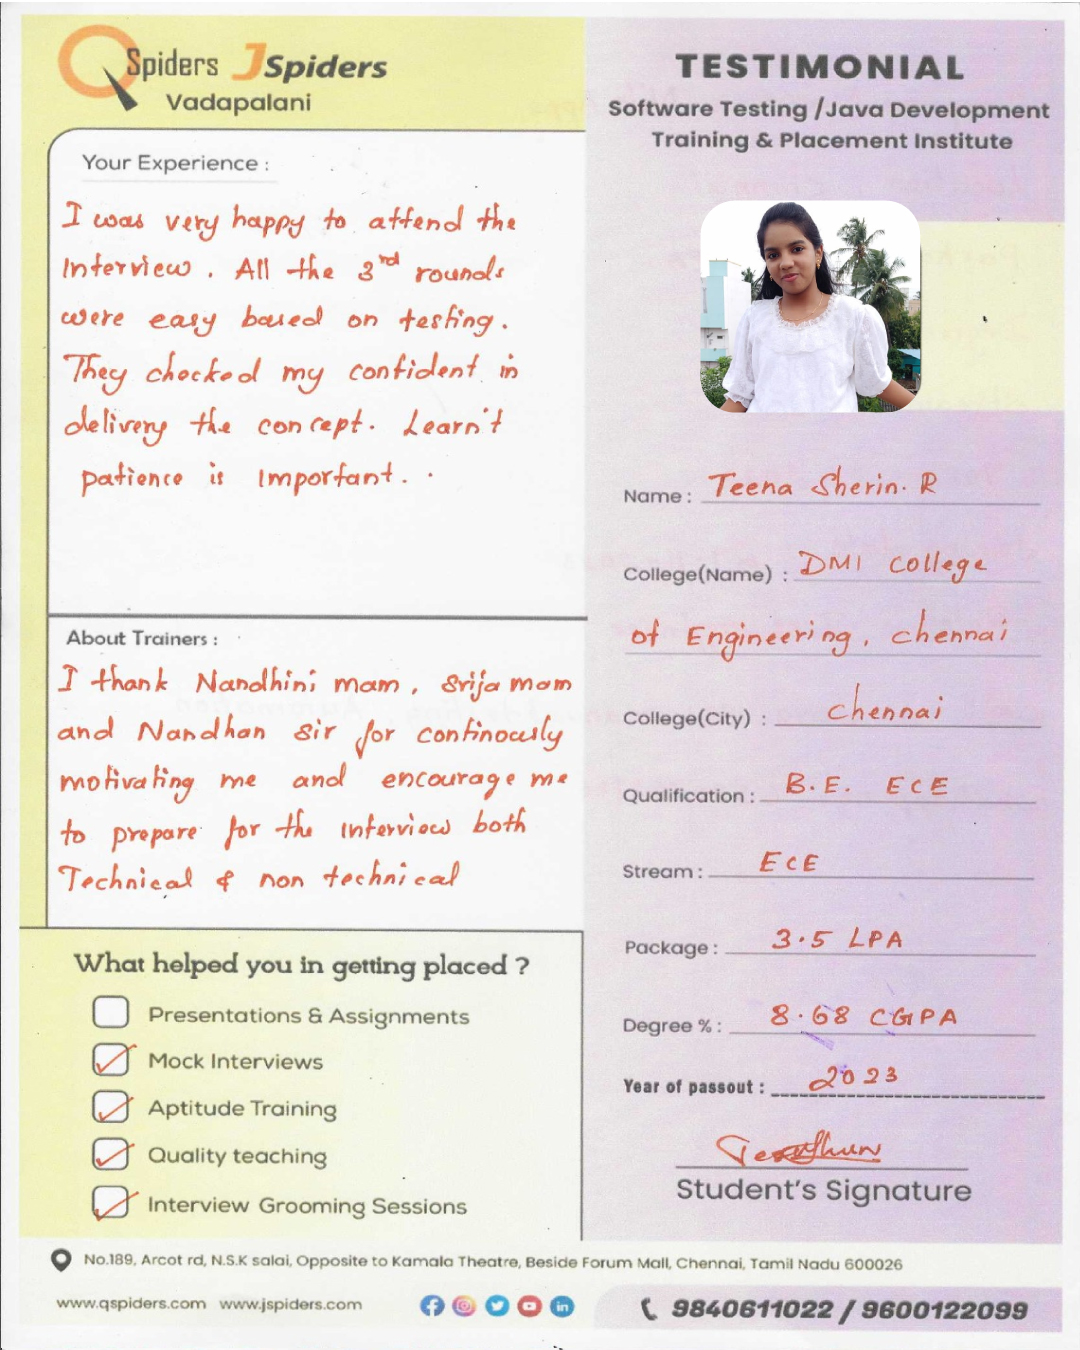 QSpiders JSpiders
Vadapalani
TESTIMONIAL
Software Testing /Java Development
Training & Placement Institute
Your Experience :
I was very happy to attend the
Interview. All the 3rd rounds
were easy based on testing.
They checked my confident in
delivery the concept. Learn't
patience is Important.
About Trainers :
I thank Nandhini mam, Srija mam
and Nandhan Sir for continously
motivating me and encourage me
to prepare for the Interview both
Technical & non technical
What helped you in getting placed ?
Presentations & Assignments
Mock Interviews
Aptitude Training
Quality teaching
Interview Grooming Sessions
Name : Teena Sherin. R
College(Name) : DMI College
of Engineering, chennai
College(City) : chennai
Qualification : B.E. ECE
Stream : ECE
Package : 3.5 LPA
Degree % : 8.68 CGPA
Year of passout : 2023
Student's Signature
No.189, Arcot rd, N.S.K salai, Opposite to Kamala Theatre, Beside Forum Mall, Chennai, Tamil Nadu 600026
www.qspiders.com www.jspiders.com
9840611022 / 9600122099